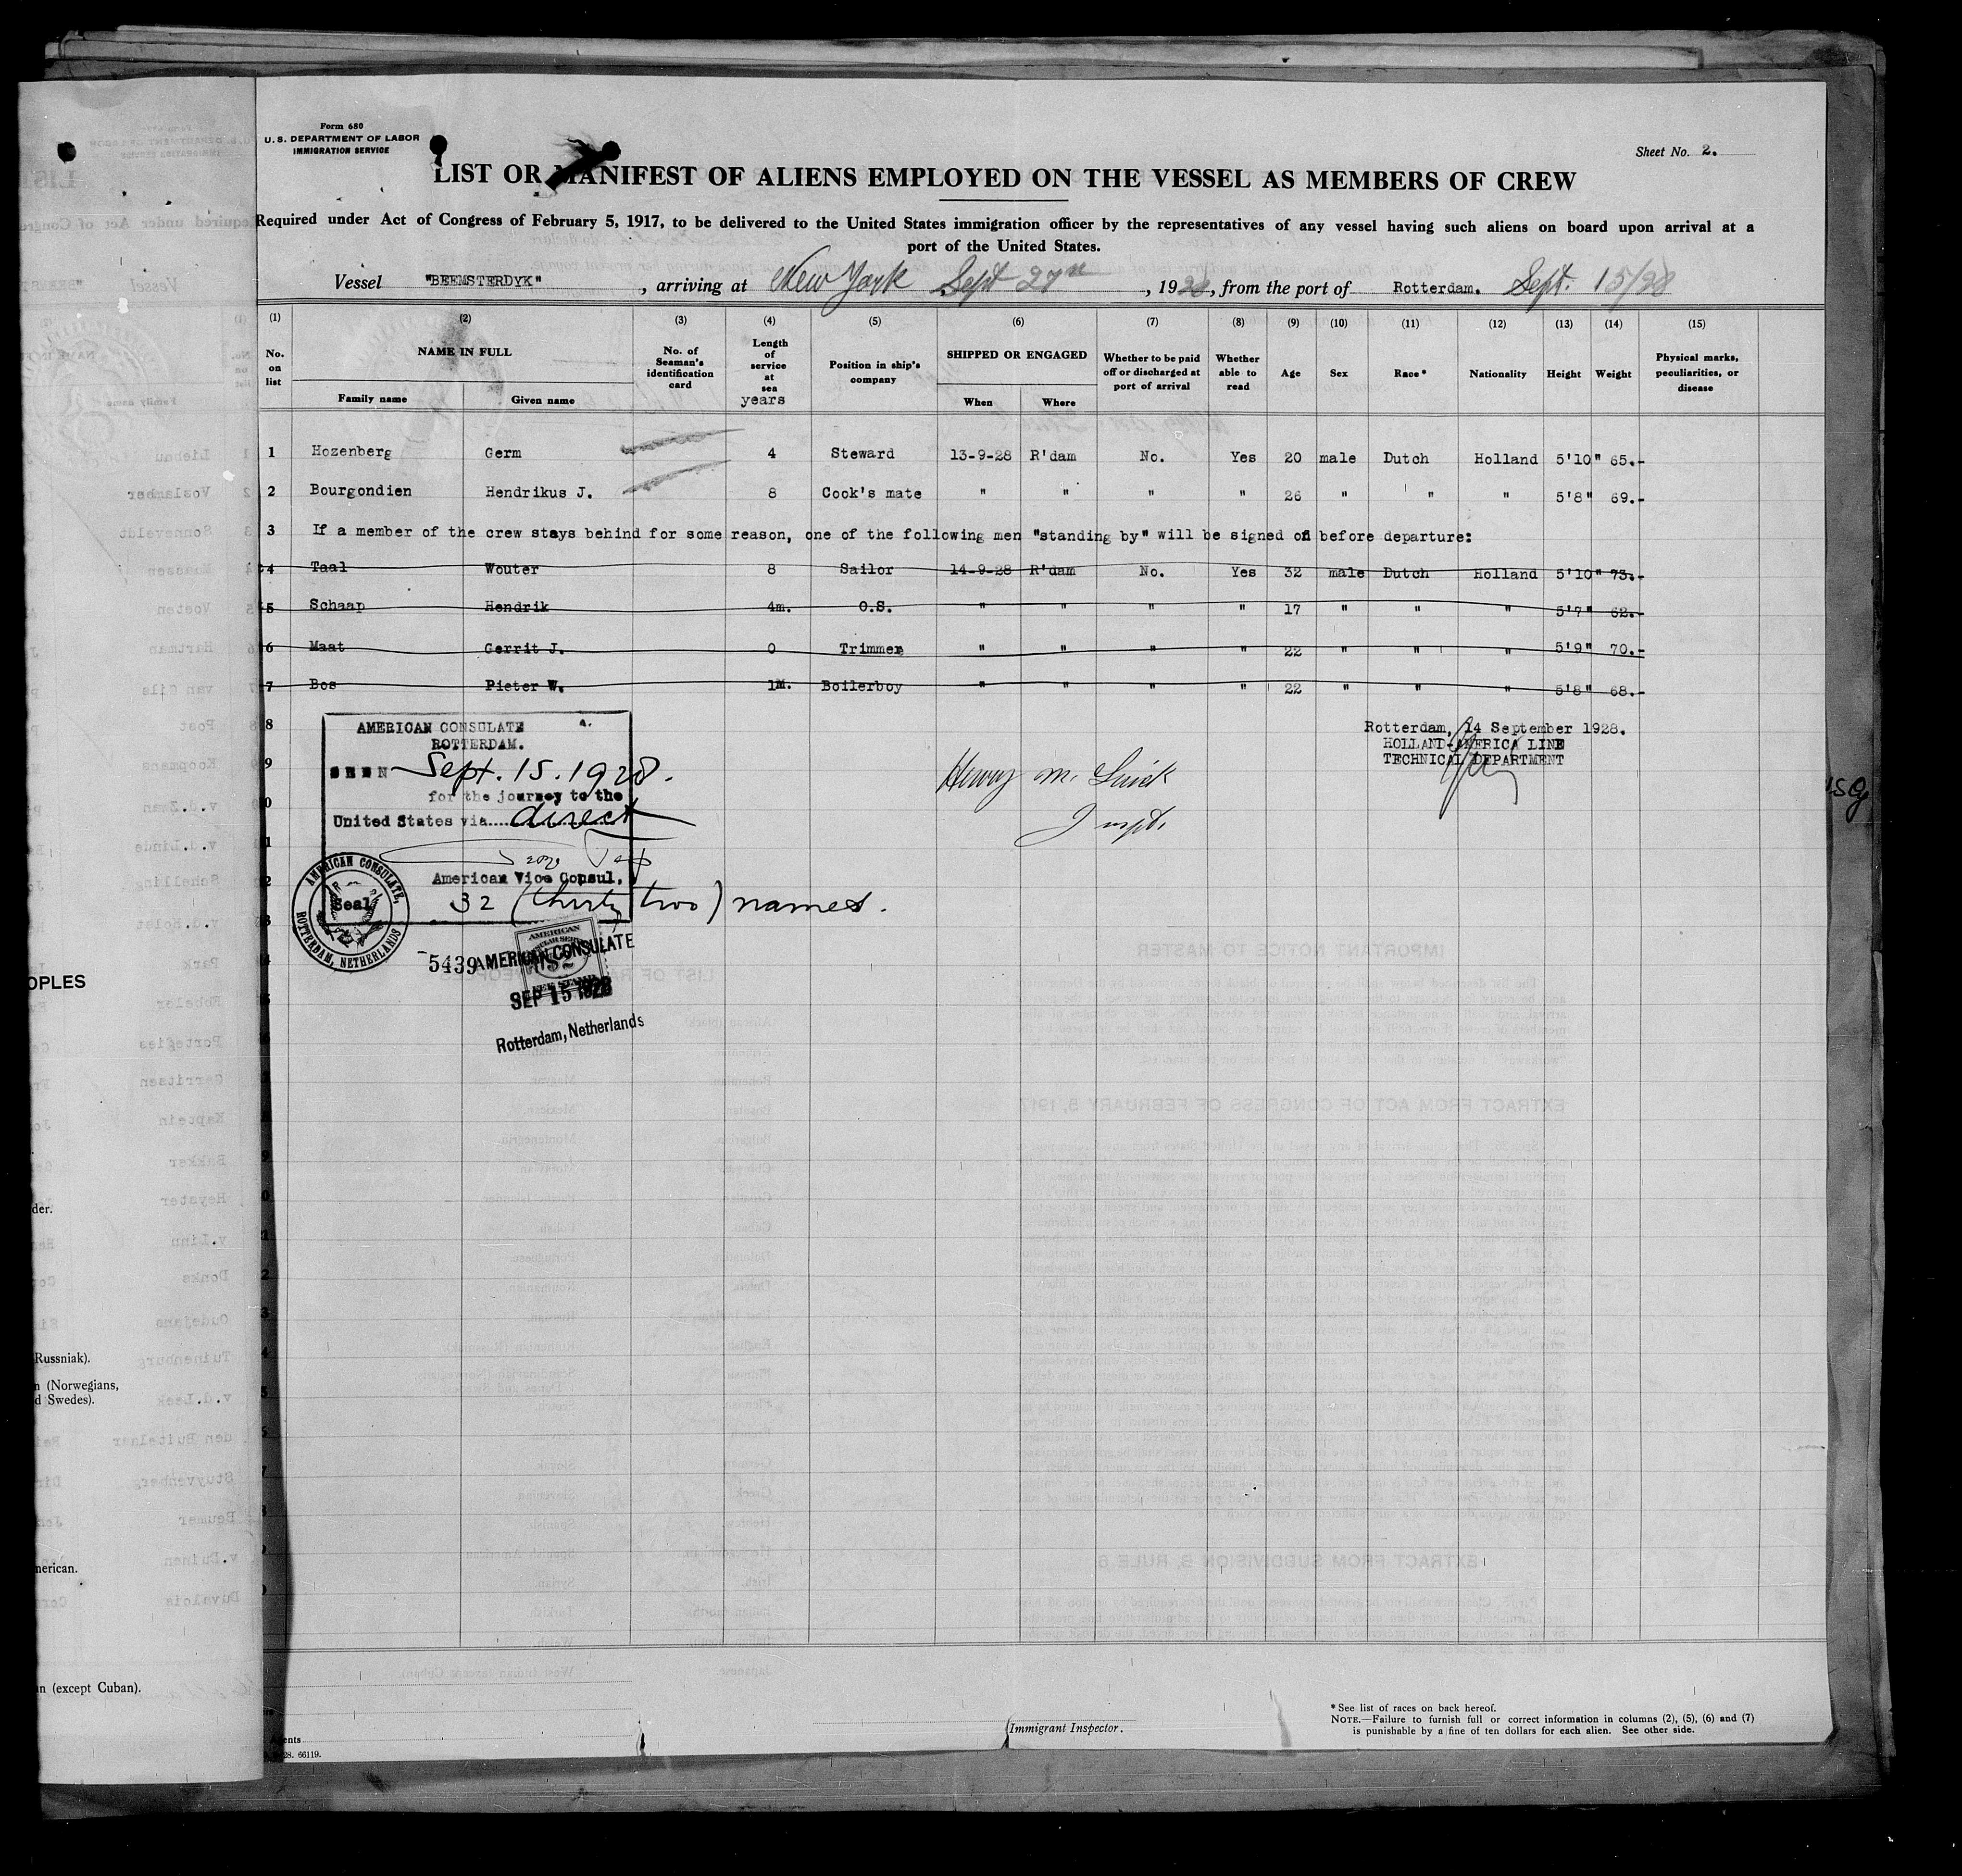 Form 680
U. S. DEPARTMENT OF LABOR
IMMIGRATION SERVICE
Sheet No. 2.
LIST OR MANIFEST OF ALIENS EMPLOYED ON THE VESSEL AS MEMBERS OF CREW
Required under Act of Congress of February 5, 1917, to be delivered to the United States immigration officer by the representatives of any vessel having such aliens on board upon arrival at a
port of the United States.
Vessel "BEEMSTERDYK", arriving at New York Sept 27th, 1928, from the port of Rotterdam. Sept. 15/28
(1) (2) (3) (4) (5) (6) (7) (8) (9) (10) (11) (12) (13) (14) (15)
No. on list NAME IN FULL Family name Given name No. of Seaman's identification card Length of service at sea years Position in ship's company SHIPPED OR ENGAGED When Where Whether to be paid off or discharged at port of arrival Whether able to read Age Sex Race* Nationality Height Weight Physical marks, peculiarities, or disease
1 Hozenberg Germ 4 Steward 13-9-28 R'dam No. Yes 20 male Dutch Holland 5'10" 65.-
2 Bourgondien Hendrikus J. 8 Cook's mate " " " " 26 " " " 5'8" 69.-
3 If a member of the crew stays behind for some reason, one of the following men "standing by" will be signed on before departure:
4 Taal Wouter 8 Sailor 14-9-28 R'dam No. Yes 32 male Dutch Holland 5'10" 73.-
5 Schaap Hendrik 4m. O.S. " " " " 17 " " " 5'7" 62.-
6 Maat Gerrit J. 0 Trimmer " " " " 22 " " " 5'9" 70.-
7 Bos Pieter W. 1M. Boilerboy " " " " 22 " " " 5'8" 68.-
8
Rotterdam, 14 September 1928.
HOLLAND-AMERICA LINE
TECHNICAL DEPARTMENT
AMERICAN CONSULATE
ROTTERDAM.
SEEN Sept. 15. 1928.
for the journey to the
United States via direct
American Vice Consul,
32 (thirty two) names.
Henry M.
Inspt.
AMERICAN CONSULATE,
Seal
ROTTERDAM, NETHERLANDS
5439
AMERICAN CONSULATE
SEP 15 1928
Rotterdam, Netherlands
OPLES
der.
Russniak).
n (Norwegians,
d Swedes).
merican.
n (except Cuban).
Immigrant Inspector.
*See list of races on back hereof.
NOTE.—Failure to furnish full or correct information in columns (2), (5), (6) and (7)
is punishable by a fine of ten dollars for each alien. See other side.
28. 66119.